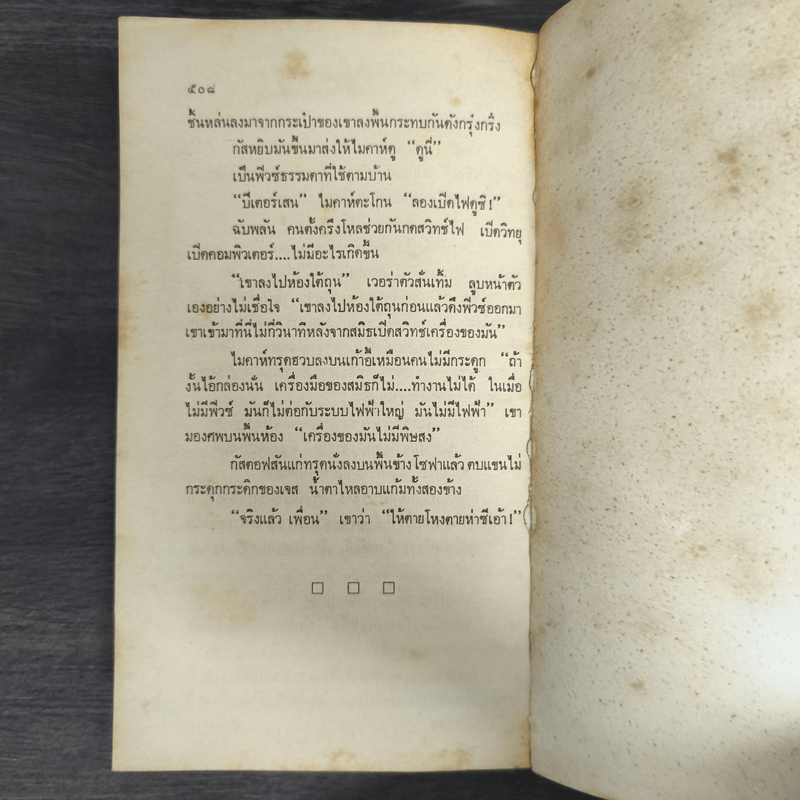 ๕๐๘
ชิ้นหล่นลงมาจากกระเป๋าของเขาลงพื้นกระทบกันดังกรุ๋งกริ๋ง
กัสหยิบมันขึ้นมาส่งให้ไมคาห์ดู “ดูนี่”
เป็นฟิวซ์ธรรมดาที่ใช้ตามบ้าน
“บีเตอร์เสน” ไมคาห์ตะโกน “ลองเปิดไฟดูซิ!”
ฉับพลัน คนตั้งครึ่งโหลช่วยกันกดสวิทช์ไฟ เปิดวิทยุ
เปิดคอมพิวเตอร์....ไม่มีอะไรเกิดขึ้น
“เขาลงไปห้องใต้ถุน” เวอร่าตัวสั่นเทิ้ม ลูบหน้าตัว
เองอย่างไม่เชื่อใจ “เขาลงไปห้องใต้ถุนก่อนแล้วดึงฟิวซ์ออกมา
เขาเข้ามาที่นี่ไม่กี่วินาทีหลังจากสมิธเปิดสวิทช์เครื่องของมัน”
ไมคาห์ทรุดฮวบลงบนเก้าอี้เหมือนคนไม่มีกระดูก “ถ้า
งั้นไอ้กล่องนั่น เครื่องมือของสมิธก็ไม่....ทำงานไม่ได้ ในเมื่อ
ไม่มีฟิวซ์ มันก็ไม่ต่อกับระบบไฟฟ้าใหญ่ มันไม่มีไฟฟ้า” เขา
มองศพบนพื้นห้อง “เครื่องของมันไม่มีพิษสง”
กัสตอฟสันแก่ทรุดนั่งลงบนพื้นข้างโซฟาแล้วตบแขนไม่
กระดุกกระดิกของเจส น้ำตาไหลอาบแก้มทั้งสองข้าง
“จริงแล้ว เพื่อน” เขาว่า “ให้ตายโหงตายห่าซีเอ้า!”